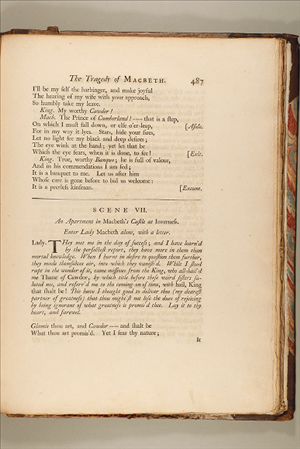 The Tragedy of MACBETH. 487
I'll be my self the harbinger, and make joyful
The hearing of my wife with your approach,
So humbly take my leave.
King. My worthy Cawdor!
Mach. The Prince of Cumberland! — that is a step,
On which I must fall down, or else o'er-leap, [Aside.
For in my way it lyes. Stars, hide your fires,
Let no light see my black and deep desires;
The eye wink at the hand; yet let that be
Which the eye fears, when it is done, to see! [Exit.
King. True, worthy Banquo; he is full so valiant,
And in his commendations I am fed;
It is a banquet to me. Let us after him
Whose care is gone before to bid us welcome:
It is a peerless kinsman. [Exeunt.
SCENE VII.
An Apartment in Macbeth's Castle at Inverness.
Enter Lady Macbeth alone, with a letter.
Lady. THey met me in the day of success; and I have learn'd
by the perfectest report, they have more in them than
mortal knowledge. When I burnt in desire to question them further,
they made themselves air, into which they vanish'd. While I stood
rapt in the wonder of it, came missives from the King, who all-hail'd
me Thane of Cawdor, by which title before these weird sisters sa-
luted me, and referr'd me to the coming on of time, with hail, King
that shalt be! This have I thought good to deliver thee (my dearest
partner of greatness) that thou might'st not lose the dues of rejoicing
by being ignorant of what greatness is promis'd thee. Lay it to thy
heart, and farewel.
Glamis thou art, and Cawdor — and shalt be
What thou art promis'd. Yet I fear thy nature;
It